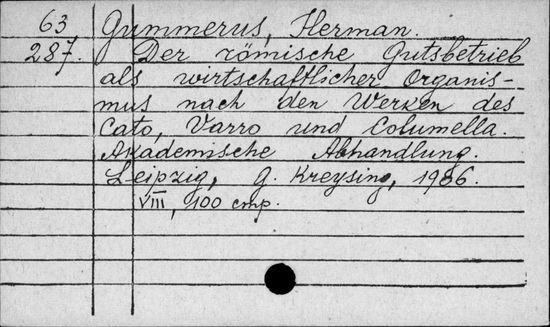 63 Gummerus, Herman.
287. Der römische Gutsbetrieb
als wirtschaftlicher Organis-
mus nach den Werken des
Cato, Varro und Columella.
Akademische Abhandlung.
Leipzig, G. Kreysing, 1906.
VIII, 100 стр.